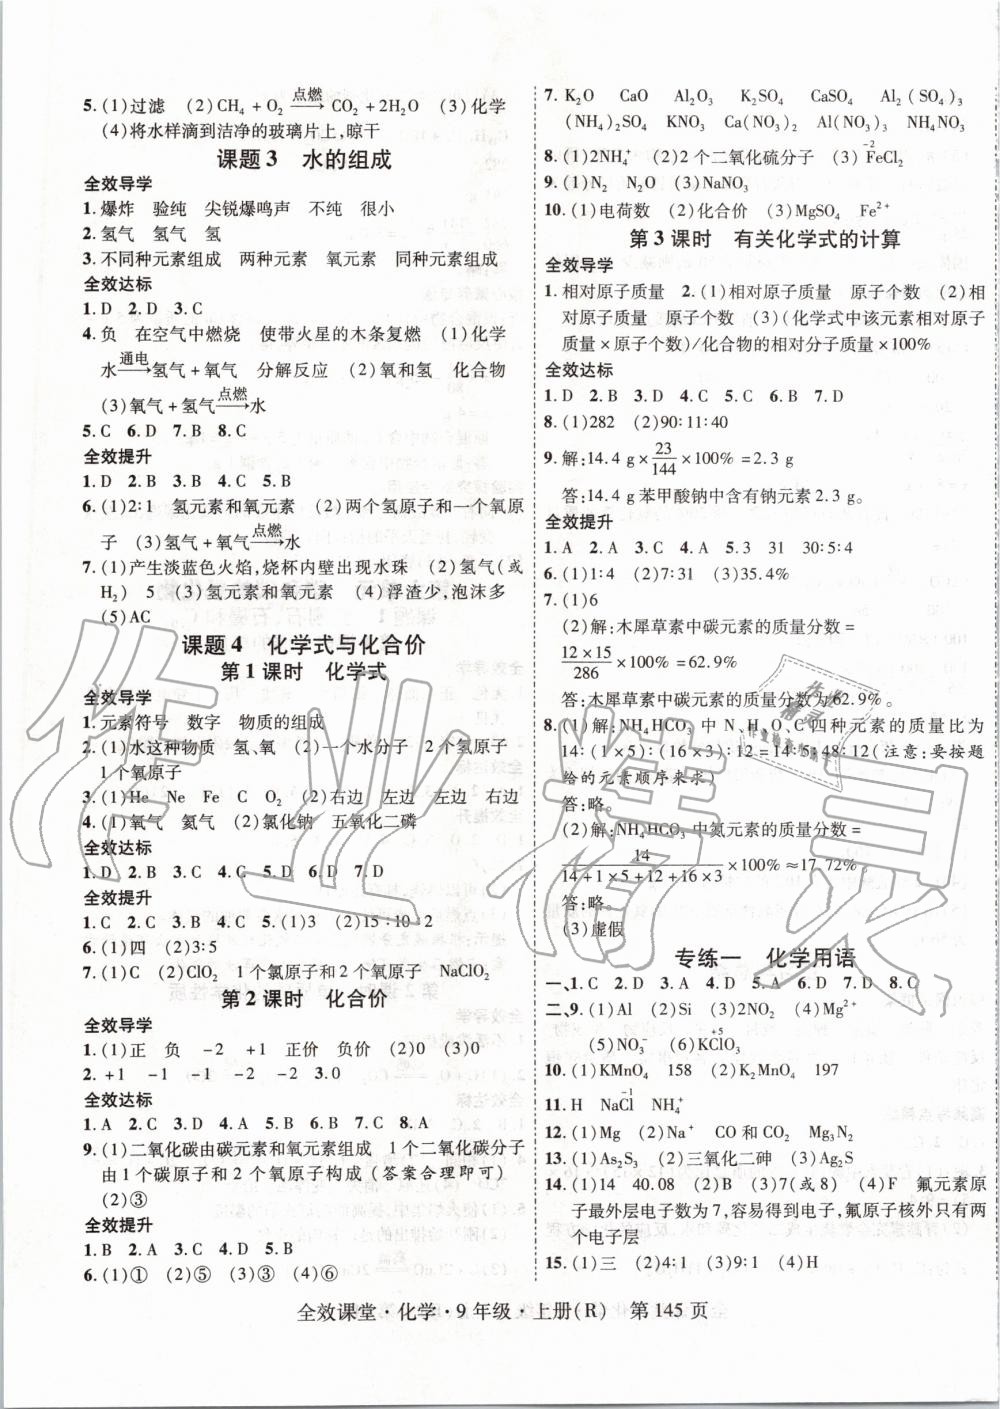 5.(1)过滤 (2)CH₄+O₂ 点燃→ CO₂+2H₂O (3)化学
(4)将水样滴到洁净的玻璃片上,晾干
课题3 水的组成
全效导学
1.爆炸 验纯 尖锐爆鸣声 不纯 很小
2.氢气 氢气 氢
3.不同种元素组成 两种元素 氧元素 同种元素组成
全效达标
1.D 2.D 3.C
4.负 在空气中燃烧 使带火星的木条复燃 (1)化学
水 通电→ 氢气+氧气 分解反应 (2)氧和氢 化合物
(3)氧气+氢气 点燃→ 水
5.C 6.D 7.B 8.C
全效提升
1.D 2.B 3.B 4.C 5.B
6.(1)2:1 氢元素和氧元素 (2)两个氢原子和一个氧原
子 (3)氢气+氧气 点燃→ 水
7.(1)产生淡蓝色火焰,烧杯内壁出现水珠 (2)氢气(或
H₂) 5 (3)氢元素和氧元素 (4)浮渣少,泡沫多
(5)AC
课题4 化学式与化合价
第1课时 化学式
全效导学
1.元素符号 数字 物质的组成
2.(1)水这种物质 氢、氧 (2)一个水分子 2个氢原子
1个氧原子
3.(1)He Ne Fe C O₂ (2)右边 左边 左边 右边
4.(1)氧气 氦气 (2)氯化钠 五氧化二磷
全效达标
1.D 2.B 3.C 4.C 5.C 6.D 7.D
全效提升
1.C 2.C 3.B 4.C 5.(1)3 (2)15:10:2
6.(1)四 (2)3:5
7.(1)C (2)ClO₂ 1个氯原子和2个氧原子 NaClO₂
第2课时 化合价
全效导学
1.(1)正 负 -2 +1 正价 负价 (2)0 (3)0
2.+1 -1 -1 -2 -2 3.0
全效达标
1.A 2.C 3.D 4.B 5.D 6.B 7.C 8.A
9.(1)二氧化碳由碳元素和氧元素组成 1个二氧化碳分子
由1个碳原子和2个氧原子构成(答案合理即可)
(2)③
全效提升
1.B 2.A 3.D 4.C 5.B
6.(1)① (2)⑤ (3)③ (4)⑥
7.K₂O CaO Al₂O₃ K₂SO₄ CaSO₄ Al₂(SO₄)₃
(NH₄)₂SO₄ KNO₃ Ca(NO₃)₂ Al(NO₃)₃ NH₄NO₃
8.(1)2NH₄⁺ (2)2个二氧化硫分子 (3)⁻²FeCl₂
9.(1)N₂ N₂O (3)NaNO₃
10.(1)电荷数 (2)化合价 (3)MgSO₄ Fe²⁺
第3课时 有关化学式的计算
全效导学
1.相对原子质量 2.(1)相对原子质量 原子个数 (2)相
对原子质量 原子个数 (3)(化学式中该元素相对原子
质量×原子个数)/化合物的相对分子质量×100%
全效达标
1.D 2.B 3.D 4.C 5.C 6.B 7.D
8.(1)282 (2)90:11:40
9.解:14.4 g×23/144×100%=2.3 g
答:14.4 g苯甲酸钠中含有钠元素2.3 g。
全效提升
1.A 2.A 3.C 4.A 5.3 31 30:5:4
6.(1)1:4 (2)7:31 (3)35.4%
7.(1)6
(2)解:木犀草素中碳元素的质量分数=
12×15/286×100%=62.9%
答:木犀草素中碳元素的质量分数为62.9%。
8.(1)解:NH₄HCO₃中N、H、O、C四种元素的质量比为
14:(1×5):(16×3):12=14:5:48:12(注意:要按题
给的元素顺序来求)
答:略。
(2)解:NH₄HCO₃中氮元素的质量分数=
14/(14+1×5+12+16×3)×100%≈17.72%
答:略。
(3)虚假
专练一 化学用语
一、1.C 2.D 3.D 4.D 5.A 6.D 7.D 8.C
二、9.(1)Al (2)Si (3)2NO₂ (4)Mg²⁺
(5)NO₃⁻ (6)KCl(+5)O₃
10.(1)KMnO₄ 158 (2)K₂MnO₄ 197
11.H NaCl(-1) NH₄⁺
12.(1)Mg (2)Na⁺ CO和CO₂ Mg₃N₂
13.(1)As₂S₃ (2)三氧化二砷 (3)Ag₂S
14.(1)14 40.08 (2)B (3)7(或8) (4)F 氟元素原
子最外层电子数为7,容易得到电子,氟原子核外只有两
个电子层
15.(1)三 (2)4:1 (3)9:1 (4)H
全效课堂·化学·9年级·上册(R) 第145页
作业精灵